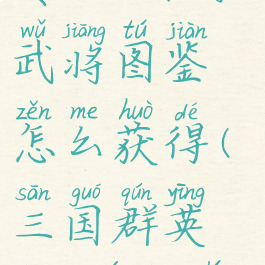 wǔ jiāng tú jiàn
武将图鉴
zěn me huò dé
怎么获得(
sān guó qún yīng
三国群英